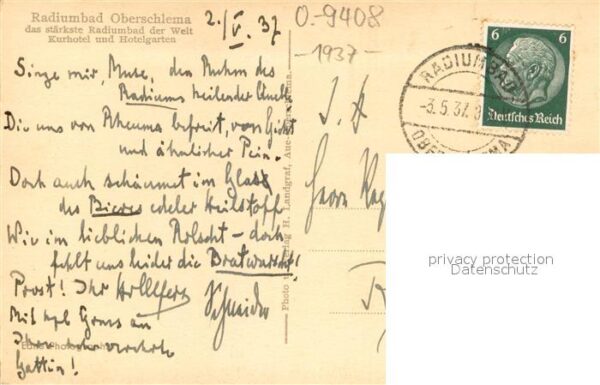 Radiumbad Oberschlema
das stärkste Radiumbad der Welt
Kurhotel und Hotelgarten
2./V. 37
O-9408
-1937-
Singe mir, Muse, den Ruhm des
Radiums heilender Quelle
Die uns von Rheuma befreit, von Gicht
und ähnlicher Pein.
Doch auch schäumet im Glase
des Bieres edeler Heilstoff
Wie im lieblichen Rolscht – doch
fehlt uns leider die Bratwurscht!
Prost! Ihr
Schneider
Mit hzl Gruss an
Ihre sehr verehrte
Gattin!
Photo Verlag H. Landgraf, Aue
Herrn
6 6
Deutsches Reich
RADIUMBAD
-3.5.37.
privacy protection
Datenschutz